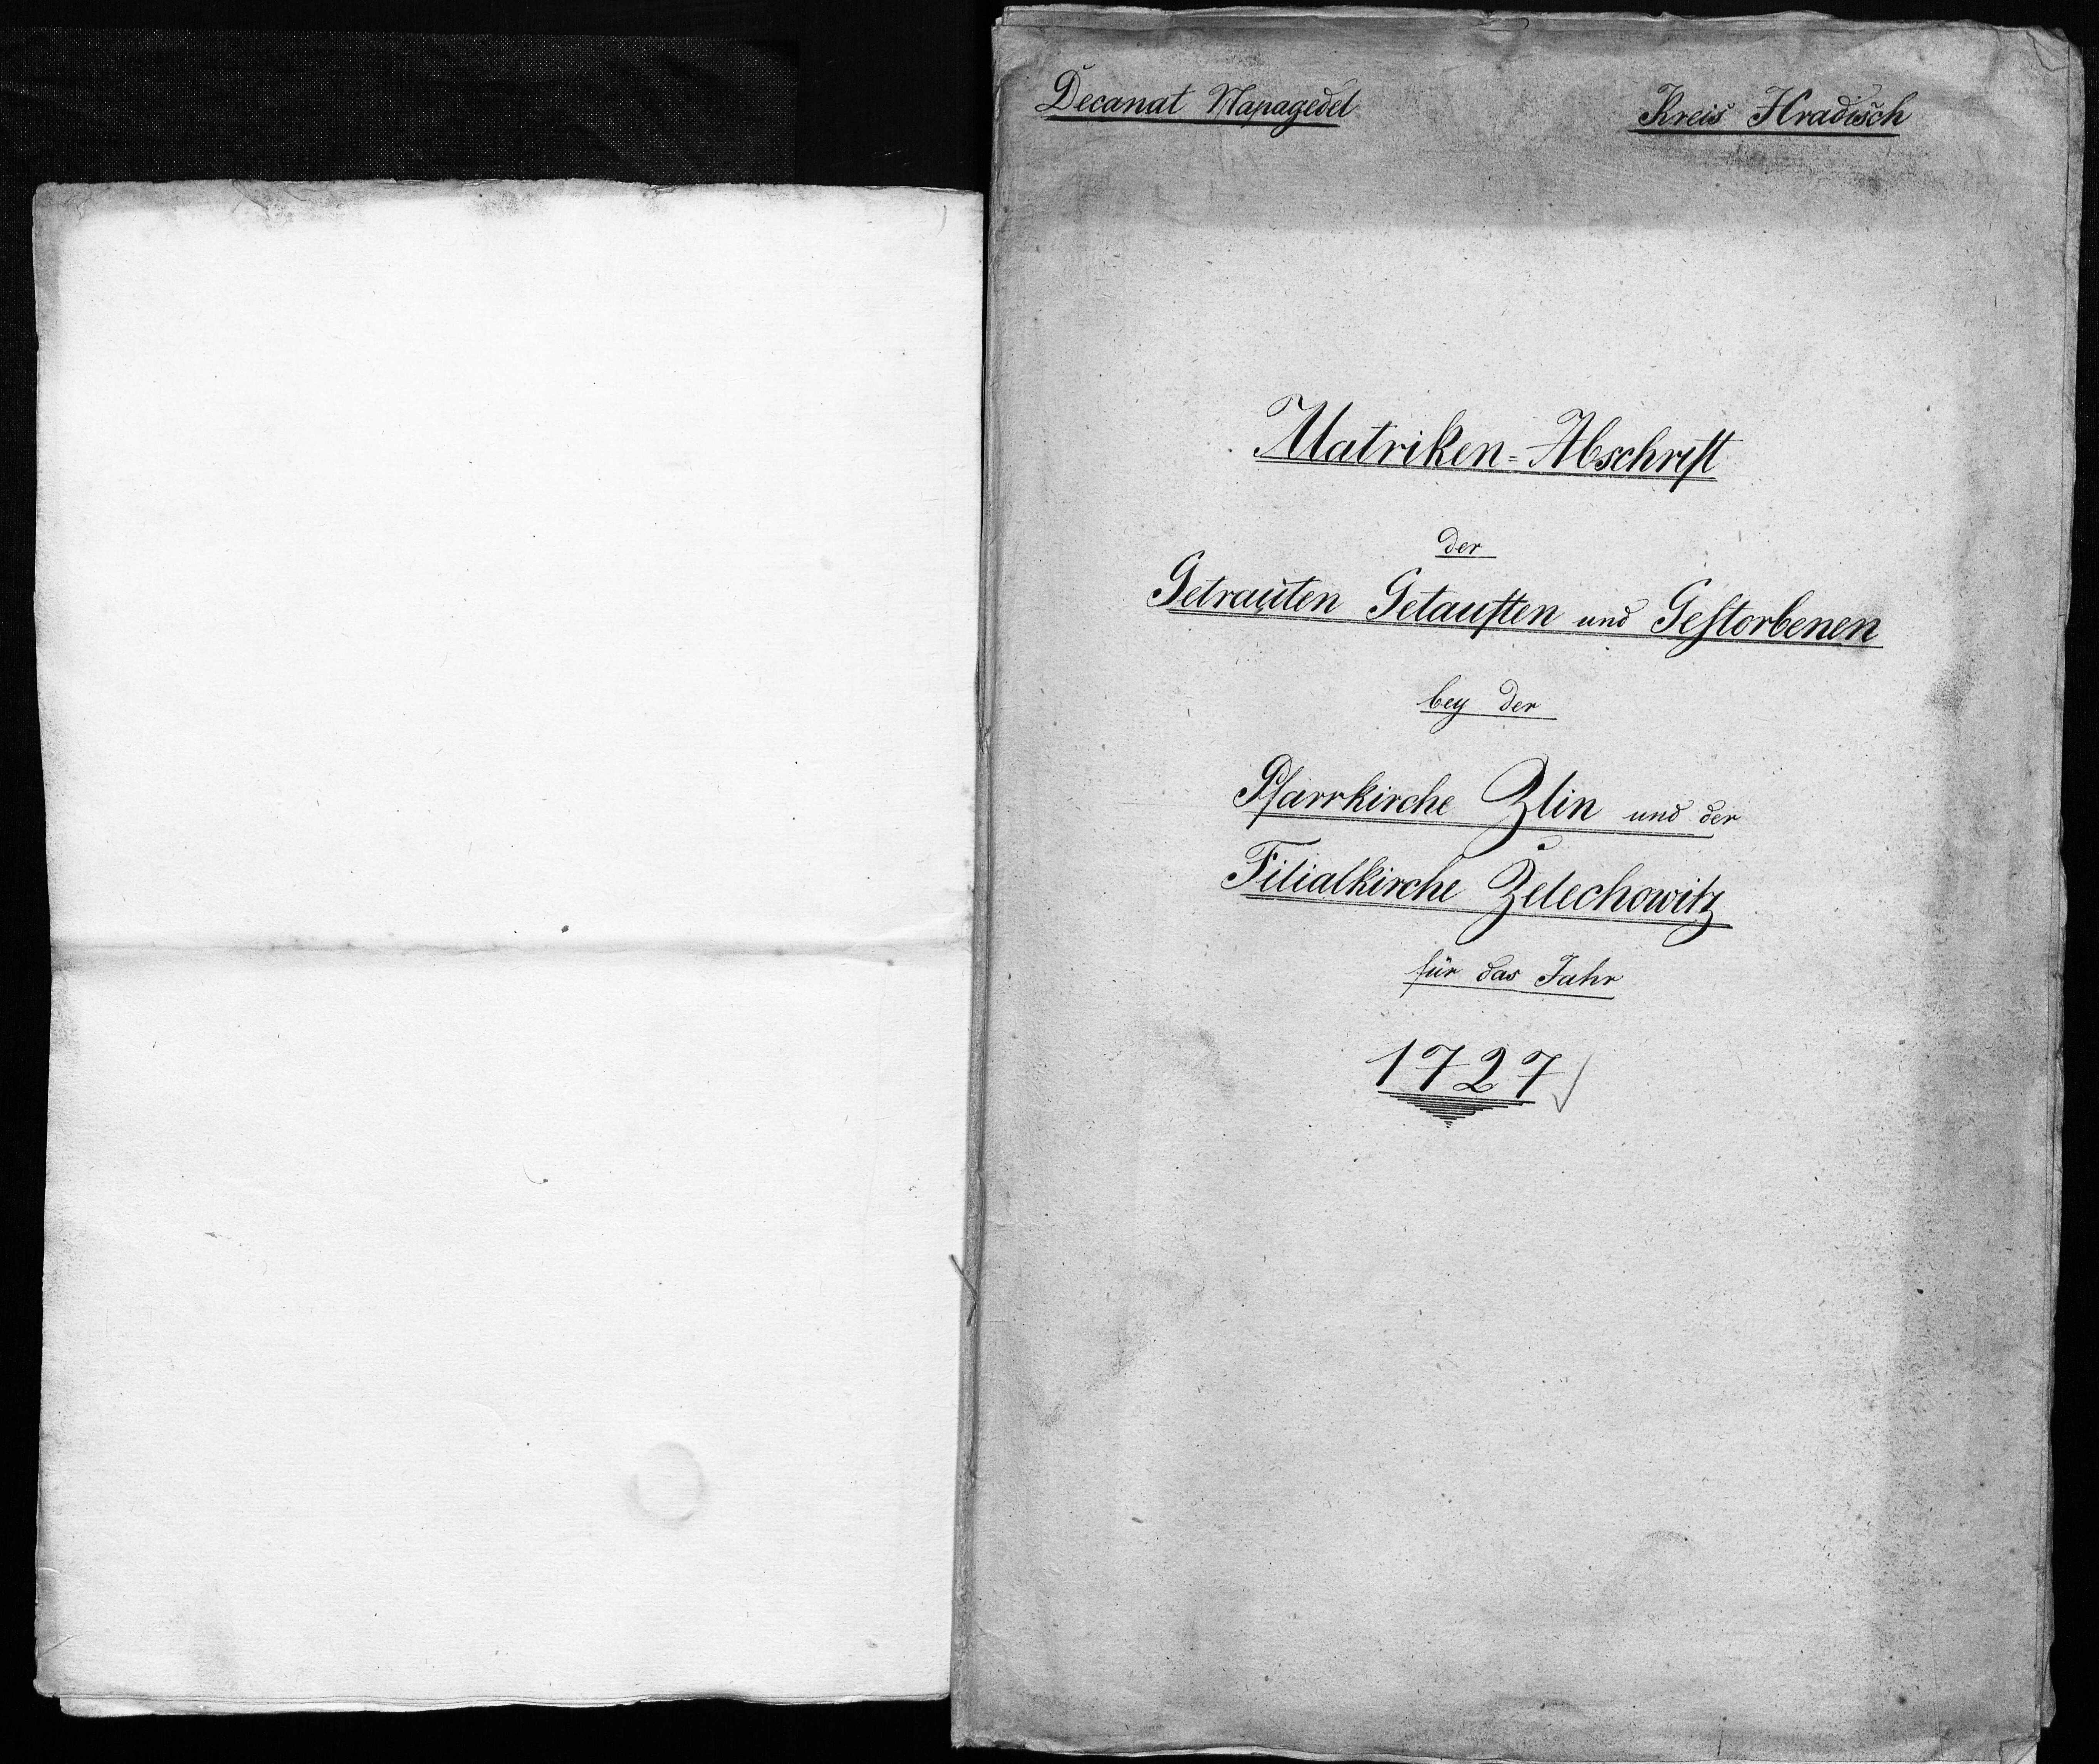 Decanat Napagedel
Kreis Hradisch
Matriken=Abschrift
der
Getrauten Getauften und Gestorbenen
bey der
Pfarrkirche Zlin und der
Filialkirche Želechowitz
für das Jahr
1727